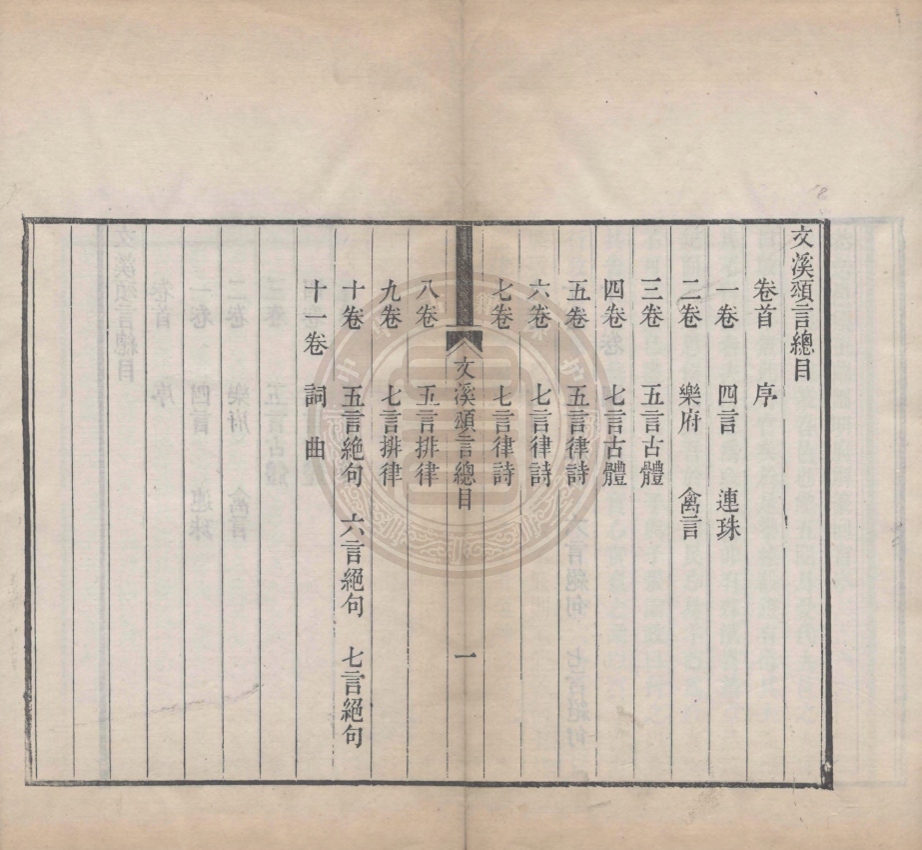 文溪頌言總目
卷首 序
一卷 四言 連珠
二卷 樂府 禽言
三卷 五言古體
四卷 七言古體
五卷 五言律詩
六卷 七言律詩
七卷 七言律詩
文溪頌言總目 一
八卷 五言排律
九卷 七言排律
十卷 五言絕句 六言絕句 七言絕句
十一卷 詞 曲